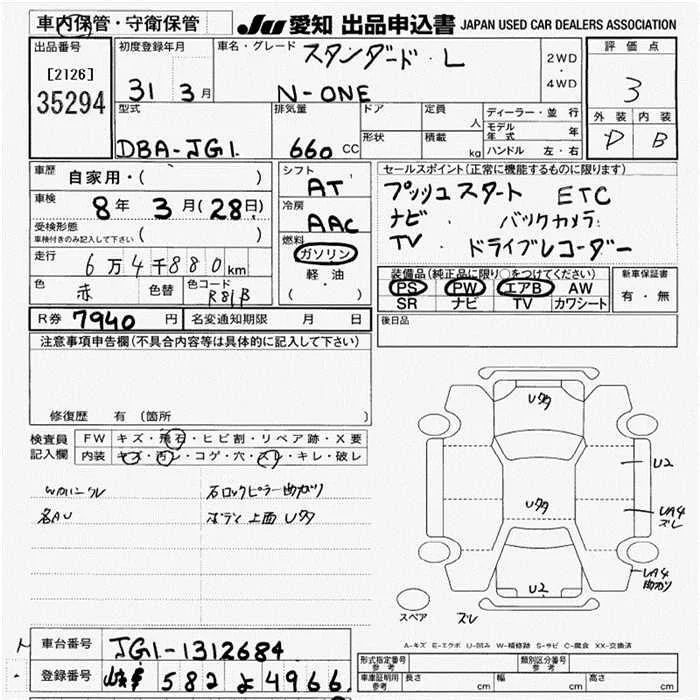 車内保管・守衛保管
JU 愛知 出品申込書 JAPAN USED CAR DEALERS ASSOCIATION
出品番号
[2126]
35294
初度登録年月
31 3月
車名・グレード スタンダード・L
N-ONE
2WD
・
4WD
評価点
3
外装 内装
D B
型式
DBA-JG1
排気量
660 CC
ドア
形状
定員
人
積載
kg
ディーラー・並行
モデル年式 年
ハンドル 左・右
車歴
自家用・( )
車検
8年 3月(28日)
受検形態
車検付きのみ記入して下さい ( )
走行
6万4千880km
色
赤
色替
色コード
R81B
シフト
AT
冷房
AAC
燃料
ガソリン
軽・油
( )
セールスポイント(正常に機能するものに限ります)
プッシュスタート ETC
ナビ・ バックカメラ
TV・ ドライブレコーダー
装備品(純正品に限り○をつけてください)
PS PW エアB AW
SR ナビ TV カワシート
新車保証書
有・無
R券 7940 円
名変通知期限 月 日
後日品
注意事項申告欄(不具合内容等は具体的に記入して下さい)
修復歴 有(箇所 )
検査員
記入欄
FW キズ・飛石・ヒビ割・リペア跡・X要
内装 キズ・汚レ・コゲ・穴・スレ・キレ・破レ
Wハンクル
右ロックピラー曲ガリ
名AU
ボディ上面Uタ
Uタ
Uタ
U2
U2
UA4
ズレ
UA4
曲ガリ
スペア
ズレ
A-キズ E-エクボ U-凹み W-補修跡 S-サビ C-腐食 XX-交換済
車台番号 JG1-1312684
登録番号 岐阜 582 よ 4966
形式指定番号
参考
類別区分番号
参考
車庫証明用
参考
長さ cm 幅 cm 高さ cm